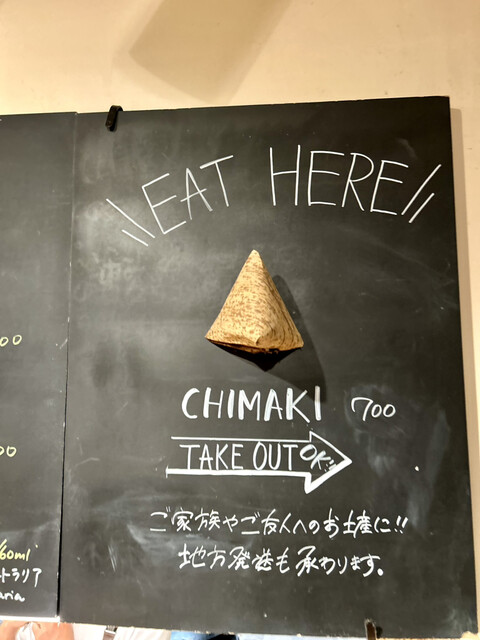 \\EAT HERE//
CHIMAKI 700
TAKE OUT OK!!
ご家族やご友人へのお土産に!!
地方発送も承わります。
00
00
60ml
トラリア
aria